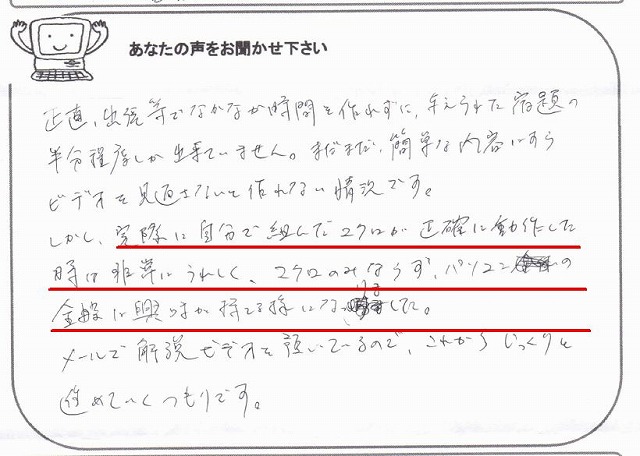 あなたの声をお聞かせ下さい
正直、出張等でなかなか時間を作れずに、与えられた宿題の
半分程度しか出来ていません。まだまだ、簡単な内容ですら
ビデオを見返さないと作れない情況です。
しかし、実際に自分で組んだマクロが正確に動作した
時は非常にうれしく、マクロのみならず、パソコンの
全般に興味が持てる様になりました。
メールで解説ビデオを頂いているので、これからじっくりと
進めていくつもりです。